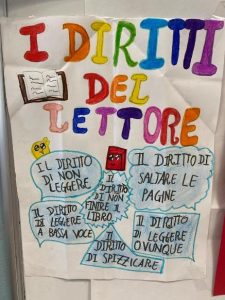 I DIRITTI
DEL
LETTORE
IL DIRITTO
DI NON
LEGGERE
IL DIRITTO DI
SALTARE LE
PAGINE
IL
DIRITTO
DI NON
FINIRE IL
LIBRO
IL DIRITTO
DI LEGGERE
A BASSA VOCE
IL DIRITTO
DI LEGGERE
OVUNQUE
IL
DIRITTO
DI SPIZZICARE